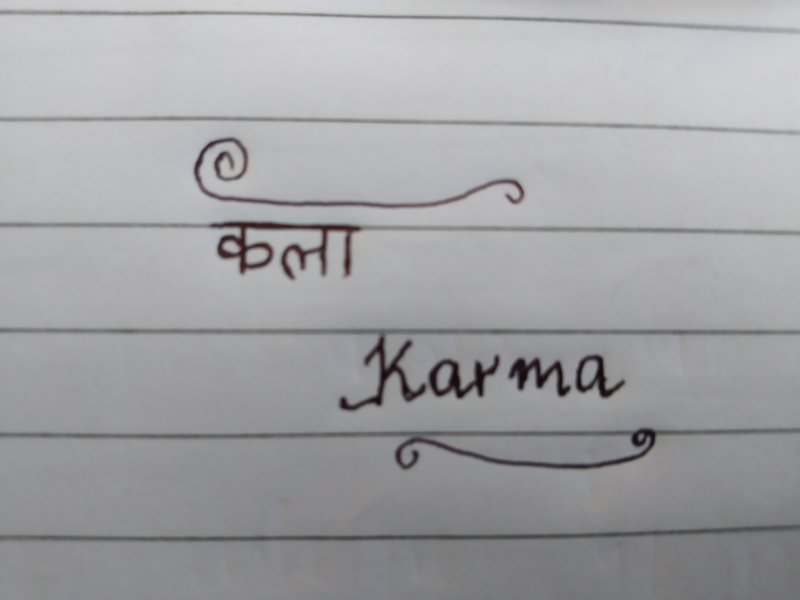 कला
Karma